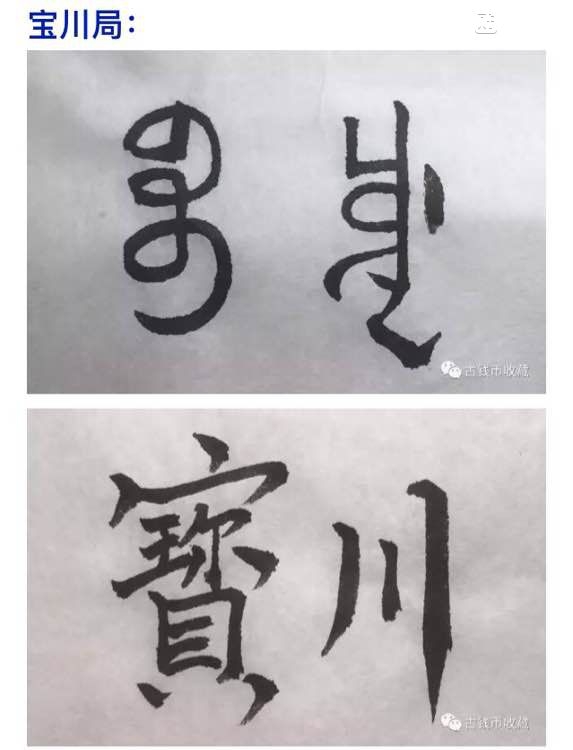 宝川局：
ᠪᠣᠣ ᠴᡠᠸᠠᠨ
古钱币收藏
寶川
古钱币收藏